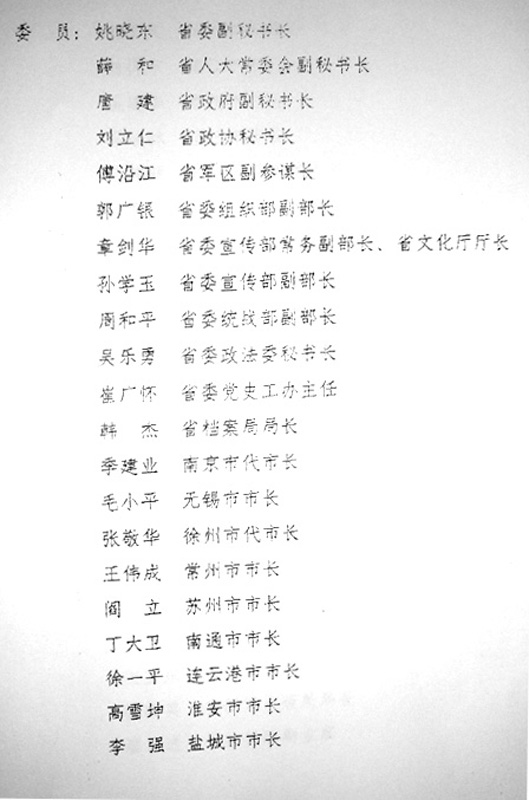 委 员：姚晓东 省委副秘书长
薛 和 省人大常委会副秘书长
唐 建 省政府副秘书长
刘立仁 省政协秘书长
傅沿江 省军区副参谋长
郭广银 省委组织部副部长
章剑华 省委宣传部常务副部长、省文化厅厅长
孙学玉 省委宣传部副部长
周和平 省委统战部副部长
吴乐勇 省委政法委秘书长
崔广怀 省委党史工办主任
韩 杰 省档案局局长
季建业 南京市代市长
毛小平 无锡市市长
张敬华 徐州市代市长
王伟成 常州市市长
阎 立 苏州市市长
丁大卫 南通市市长
徐一平 连云港市市长
高雪坤 淮安市市长
李 强 盐城市市长